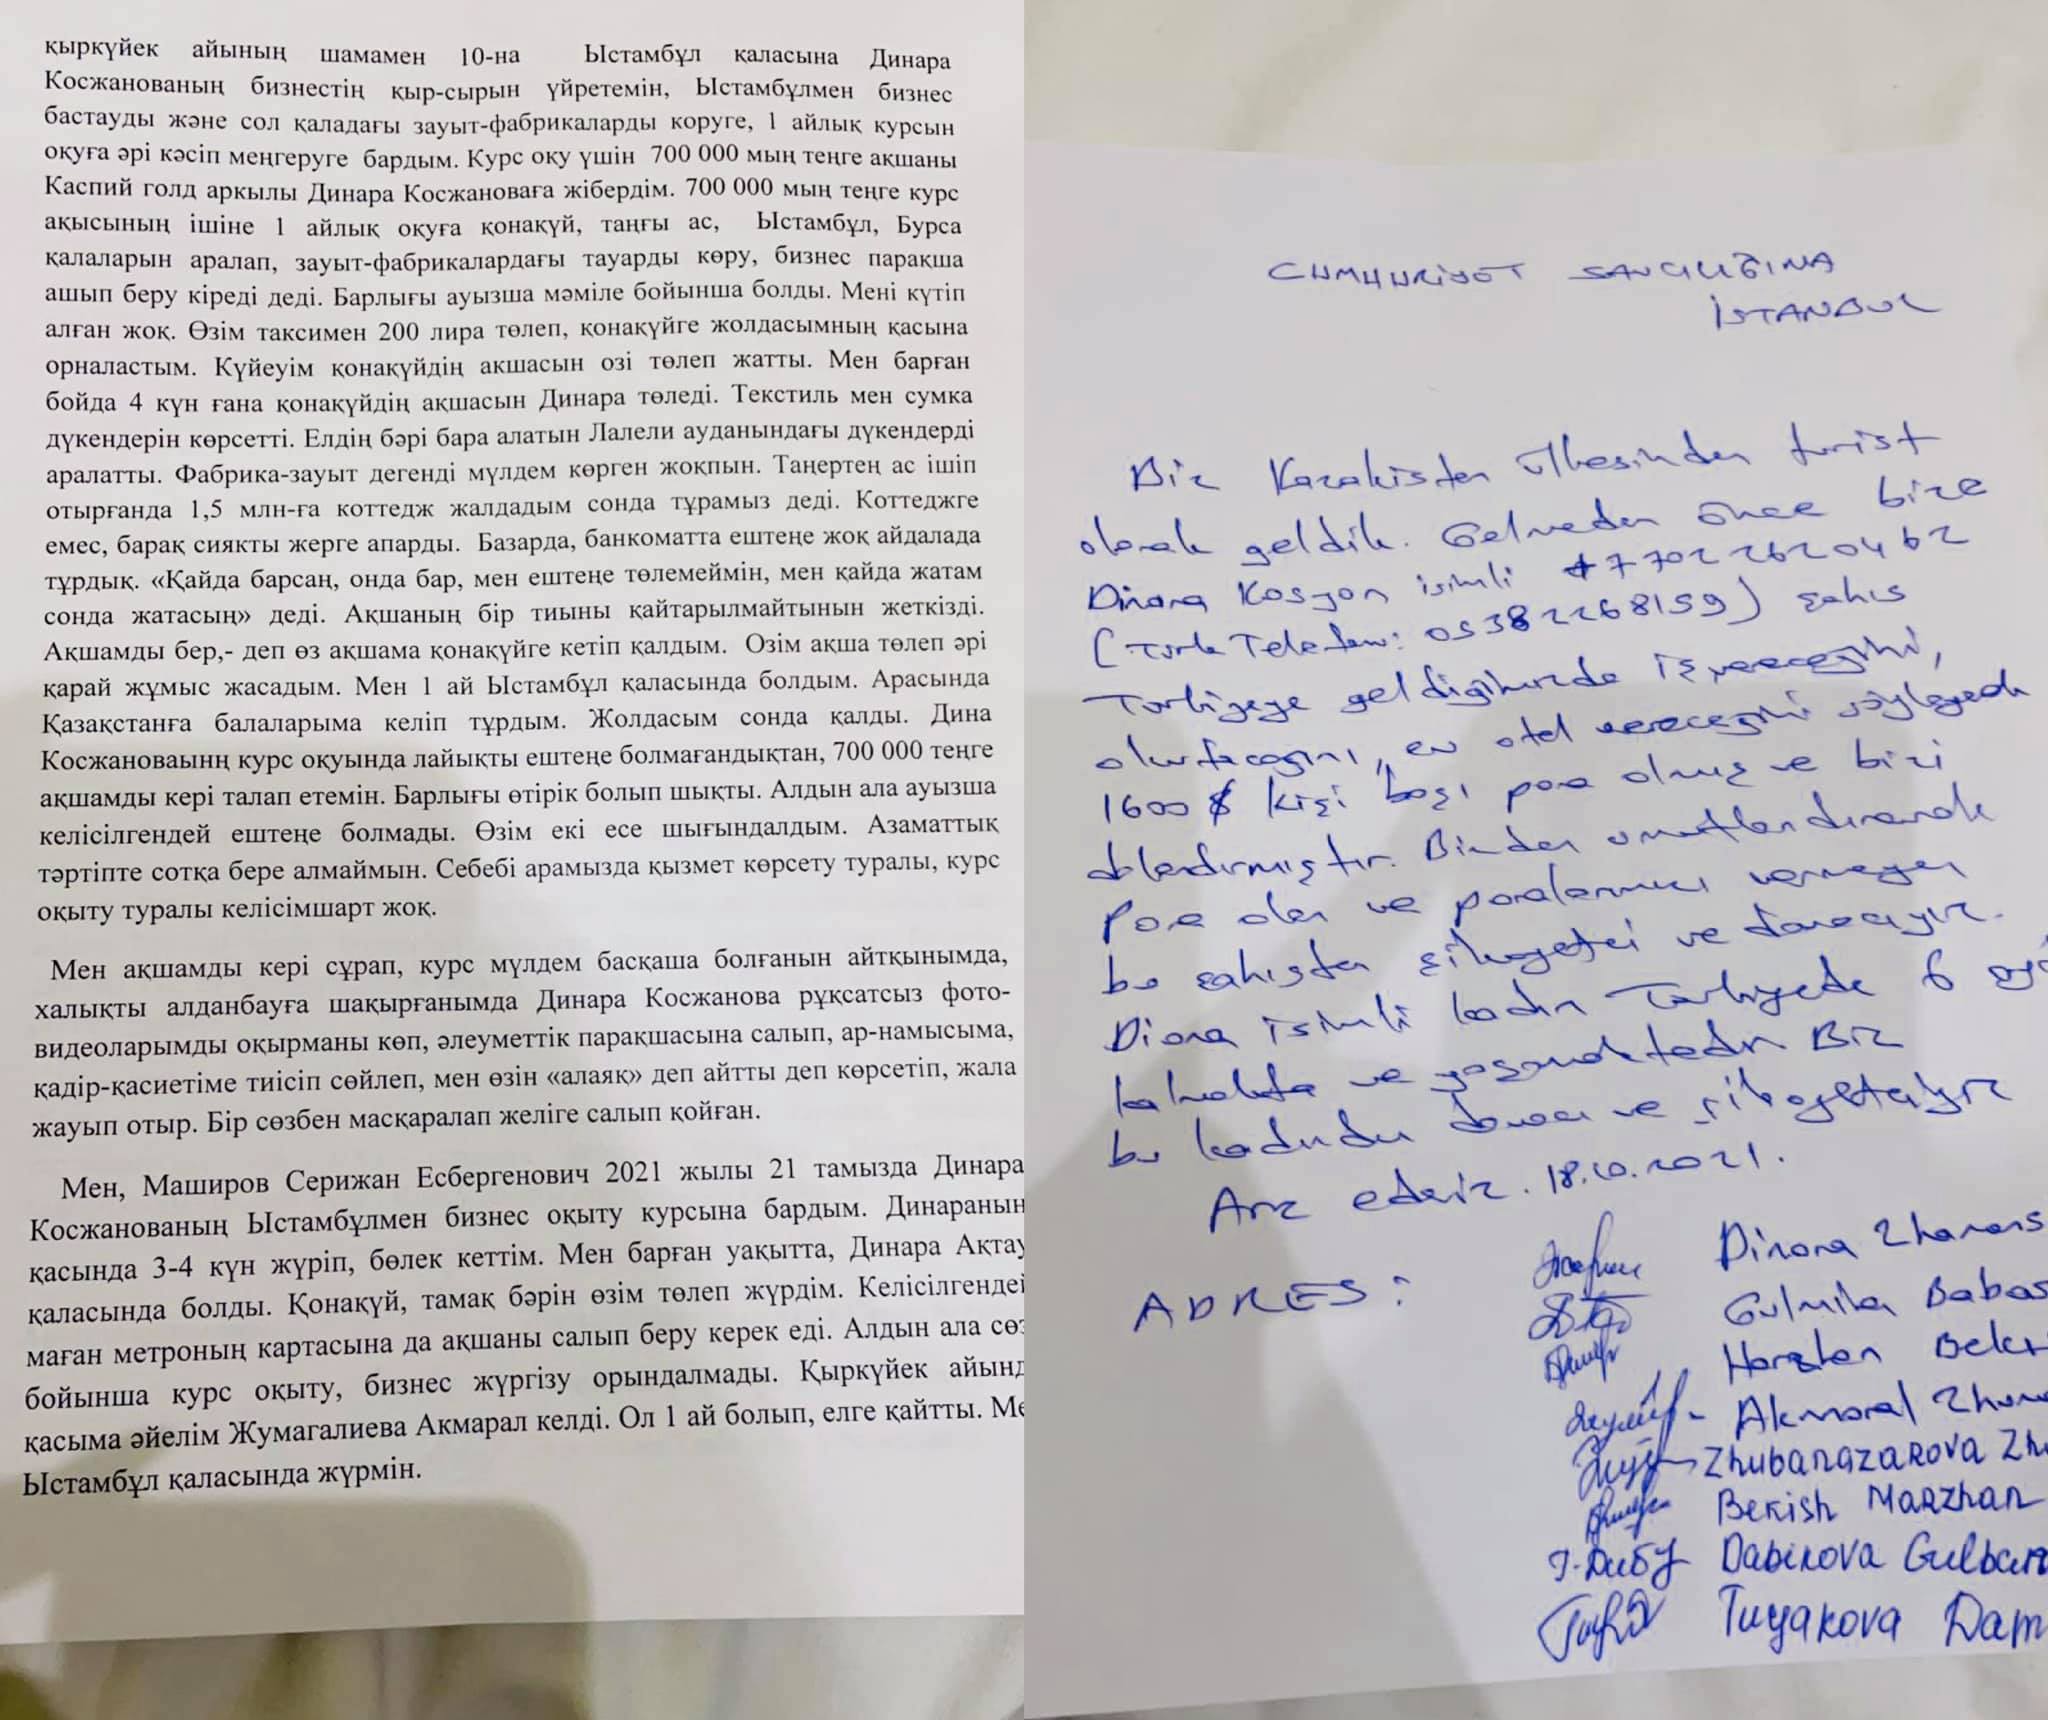 қыркүйек айының шамамен 10-на Ыстамбұл қаласына Динара
Косжанованың бизнестің қыр-сырын үйретемін, Ыстамбұлмен бизнес
бастауды және сол қаладағы зауыт-фабрикаларды коруге, 1 айлық курсын
оқуға әрі кәсіп меңгеруге бардым. Курс оқу үшін 700 000 мың теңге ақшаны
Каспий голд арқылы Динара Косжановаға жібердім. 700 000 мың теңге курс
ақысының ішіне 1 айлық оқуға қонақүй, таңғы ас, Ыстамбұл, Бурса
қалаларын аралап, зауыт-фабрикалардағы тауарды көру, бизнес парақша
ашып беру кіреді деді. Барлығы ауызша мәміле бойынша болды. Мені күтіп
алған жоқ. Өзім таксимен 200 лира төлеп, қонақүйге жолдасымның қасына
орналастым. Күйеуім қонақүйдің акшасын озі төлеп жатты. Мен барған
бойда 4 күн ғана қонақүйдің ақшасын Динара төледі. Текстиль мен сумка
дүкендерін көрсетті. Елдің бәрі бара алатын Лалели ауданындағы дүкендерді
аралатты. Фабрика-зауыт дегенді мүлдем көрген жоқпын. Таңертең ас ішіп
отырғанда 1,5 млн-ға коттедж жалдадым сонда тұрамыз деді. Коттеджге
емес, барақ сиякты жерге апарды. Базарда, банкоматта ештеңе жоқ айдалада
тұрдық. «Қайда барсаң, онда бар, мен ештеңе төлемеймін, мен қайда жатам
сонда жатасың» деді. Ақшаның бір тиыны қайтарылмайтынын жеткізді.
Ақшамды бер,- деп өз ақшама қонақүйге кетіп қалдым. Озім ақша төлеп әрі
қарай жұмыс жасадым. Мен 1 ай Ыстамбұл қаласында болдым. Арасында
Қазақстанға балаларыма келіп тұрдым. Жолдасым сонда қалды. Дина
Косжановаынң курс оқуында лайықты ештеңе болмағандықтан, 700 000 теңге
ақшамды кері талап етемін. Барлығы өтірік болып шықты. Алдын ала ауызша
келісілгендей ештеңе болмады. Өзім екі есе шығындалдым. Азаматтық
тәртіпте сотқа бере алмаймын. Себебі арамызда қызмет көрсету туралы, курс
оқыту туралы келісімшарт жоқ.
Мен ақшамды кері сұрап, курс мүлдем басқаша болғанын айтқынымда,
халықты алданбауға шақырғанымда Динара Косжанова рұқсатсыз фото-
видеоларымды оқырманы көп, әлеуметтік парақшасына салып, ар-намысыма,
қадір-қасиетіме тиісіп сөйлеп, мен өзін «алаяқ» деп айтты деп көрсетіп, жала
жауып отыр. Бір сөзбен масқаралап желіге салып қойған.
Мен, Маширов Серижан Есбергенович 2021 жылы 21 тамызда Динара
Косжанованың Ыстамбұлмен бизнес оқыту курсына бардым. Динараның
қасында 3-4 күн жүріп, бөлек кеттім. Мен барған уақытта, Динара Ақтау
қаласында болды. Қонақүй, тамақ бәрін өзім төлеп жүрдім. Келісілгендей
маған метроның картасына да ақшаны салып беру керек еді. Алдын ала сөз
бойынша курс оқыту, бизнес жүргізу орындалмады. Қыркүйек айынд
қасыма әйелім Жумагалиева Акмарал келді. Ол 1 ай болып, елге қайтты. Ме
Ыстамбұл қаласында жүрмін.
CUMHURİYET SAVCILIĞINA
İSTANBUL
Biz Kazakistan ülkesinden turist
olarak geldik. Gelmeden önce bize
Dinara Kosjan isimli +77022620462
(Türk Telefon: 05382268159) şahıs
Türkiyeye geldiğimizde iş vereceğini,
oturtacağını, ev otel vereceğini söyleyerek
1600 $ kişi başı para almış ve bizi
dolandırmıştır. Bizden umutlandırarak
Para alan ve paralarımızı vermeyen
bu şahıstan şikayetçi ve davacıyız.
Dinara isimli kadın Türkiyede 6
kalmakta ve yaşamaktadır Biz
bu kadından davacı ve şikayetçiyiz
Arz ederiz. 18.10.2021.
ADRES:
Dinara
Gulmira
Akmaral
Zhubanazarova
Bekish Marzhan
Dabirova
Tuyakova